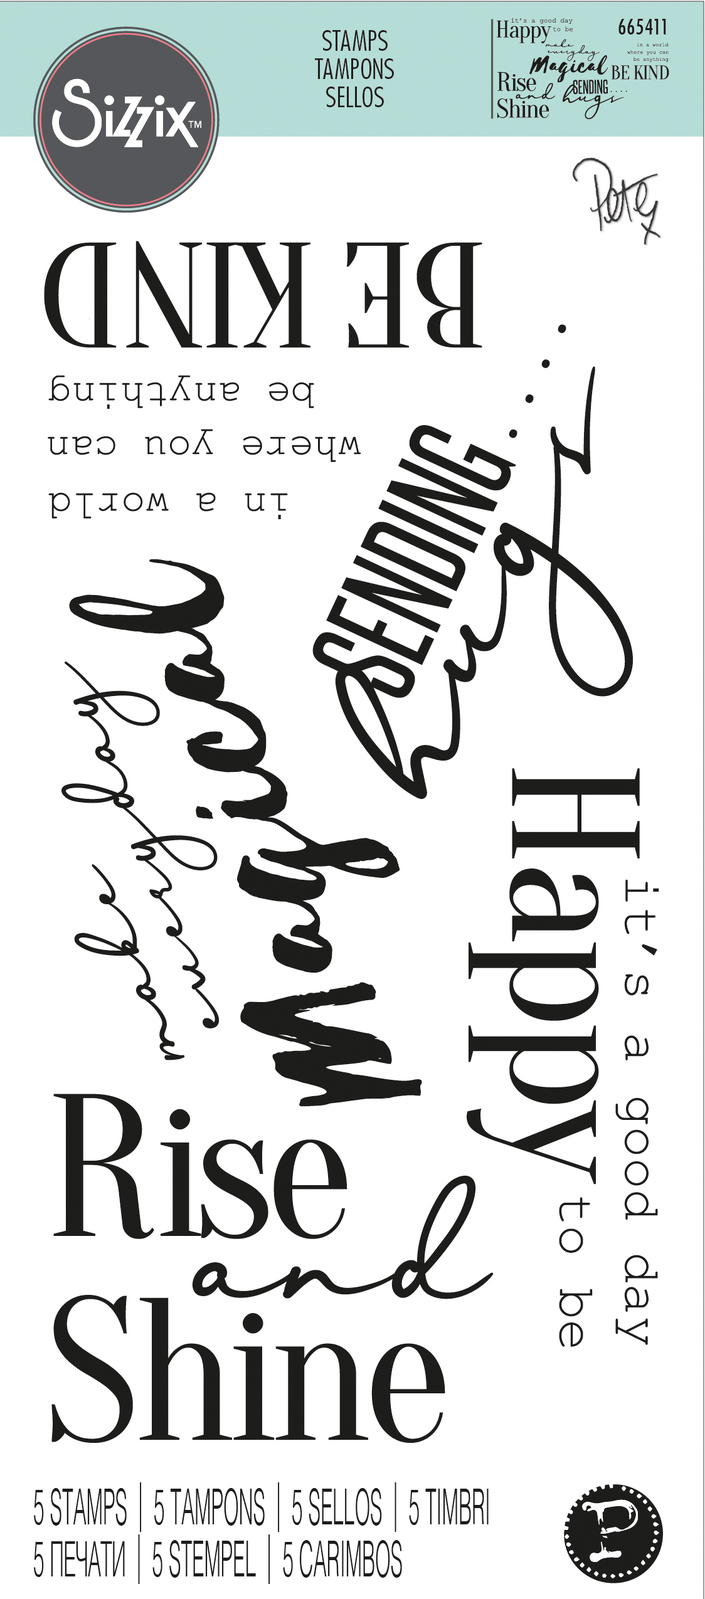 Sizzix™
STAMPS
TAMPONS
SELLOS
it's a good day
Happy to be
make
everyday
Magical
Rise
and
Shine
SENDING....
hugs
in a world
where you can
be anything
BE KIND
665411
Pete x
in a world
where you can
be anything
BE KIND
SENDING....
hugs
make
everyday
Magical
it's a good day
Happy to be
Rise
and
Shine
5 STAMPS | 5 TAMPONS | 5 SELLOS | 5 TIMBRI
5 ПЕЧАТИ | 5 STEMPEL | 5 CARIMBOS
P